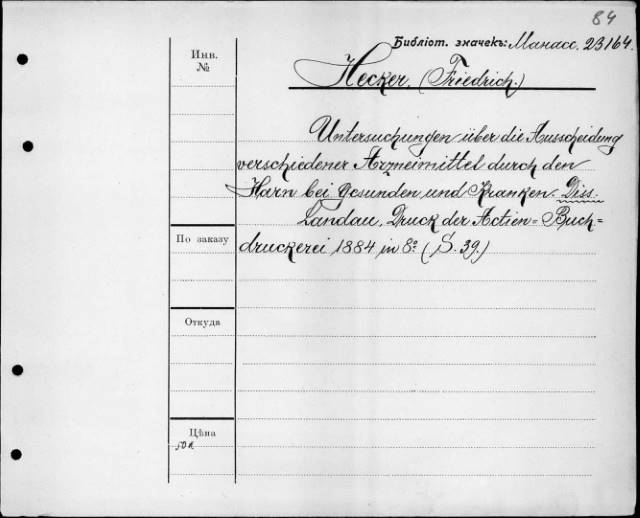 84
Библіот. значекъ: Манасс. 23164.
Инв.
№
Hecker, (Friedrich.)
Untersuchungen über die Ausscheidung
verschiedener Arzneimittel durch den
Harn bei Gesunden und Kranken. Diss.
Landau, Druck der Actien=Buch=
druckerei 1884 in 8º (S. 39.)
По заказу
Откуда
Цѣна
50к